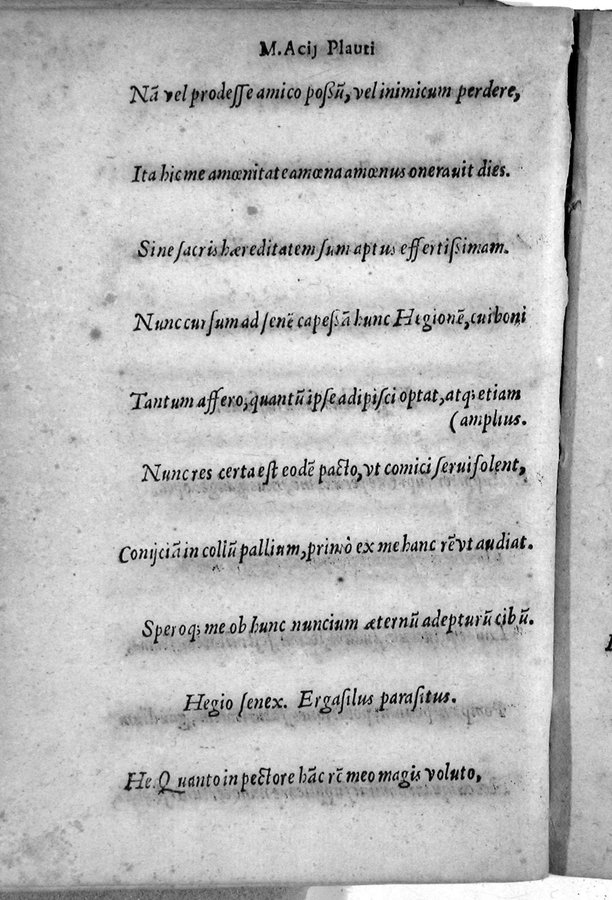 M. Acij Plauti
Nã vel prodeſſe amico poßũ, vel inimicum perdere,
Ita hic me amœnitate amœna amœnus onerauit dies.
Sine ſacris hæreditatem ſum aptus effertißimam.
Nunc curſum ad ſenẽ capeßã hunc Hegionẽ, cui boni
Tantum affero, quantũ ipſe adipiſci optat, atq; etiam
(amplius.
Nunc res certa eſt eodẽ pacto, vt comici ſerui ſolent,
Conijciã in collũ pallium, primò ex me hanc rẽ vt audiat.
Speroq; me ob hunc nuncium æternũ adepturũ cibũ.
Hegio ſenex. Ergaſilus paraſitus.
He. Quanto in pectore hãc rẽ meo magis voluto,